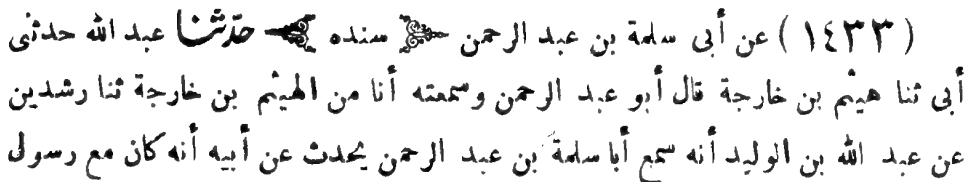 (١٤٣٣) عن أبى سلمة بن عبد الرحمن سنده حدّثنا عبد الله حدثنى
أبى ثنا هيثم بن خارجة قال أبو عبد الرحمن وسمعته أنا من الهيثم بن خارجة ثنا رشدين
عن عبد الله بن الوليد أنه سمع أبا سلمة بن عبد الرحمن يحدث عن أبيه أنه كان مع رسول